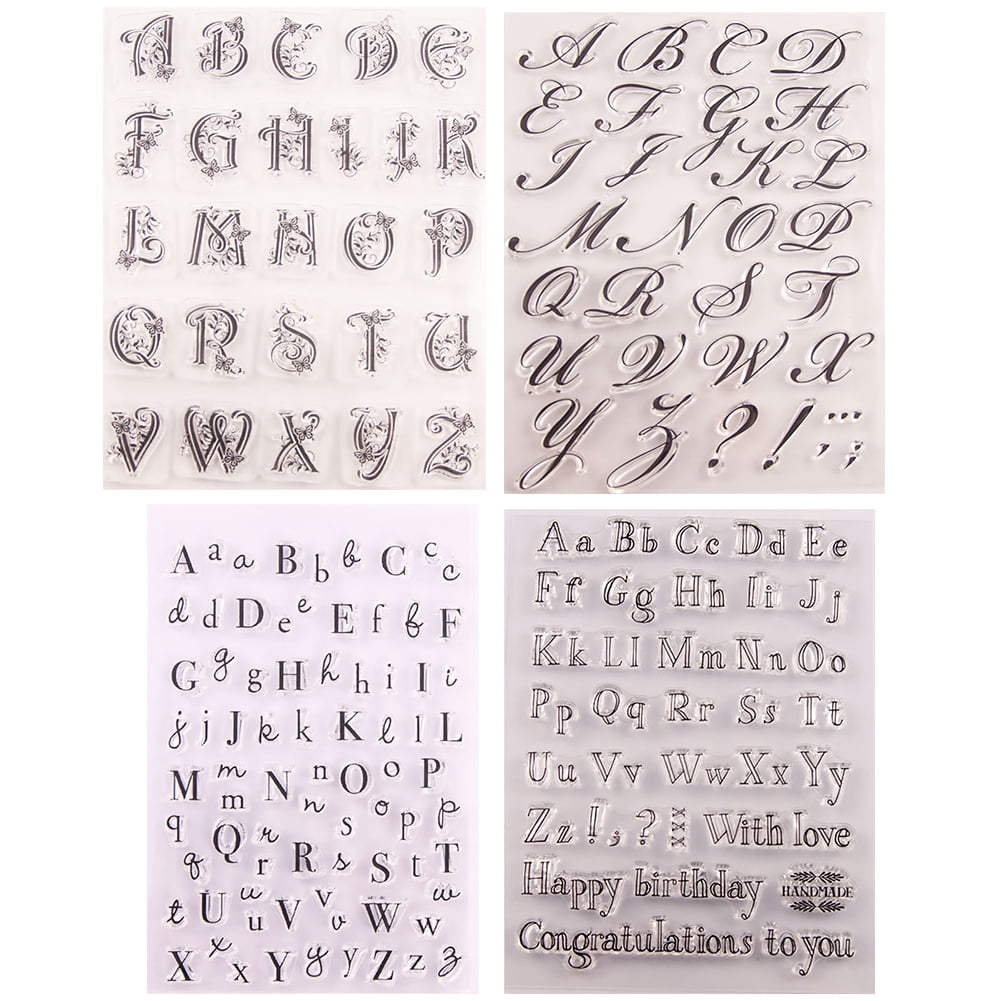 A B C D E
F G H I J K
L M N O P
Q R S T U
V W X Y Z
A B C D
E F G H
I J K L
M N O P
Q R S T
U V W X
Y Z ? ! ... , ; 
A a a B b b C c c
d d D e e E f f F
G g g H h h i I i
j j J k k K l l L
M m m N n n O o o P p p
q q Q r r R s s S t T
t U u u V v v W w w
X x x Y y y Z z z
Aa Bb Cc Dd Ee
Ff Gg Hh Ii Jj
Kk Ll Mm Nn Oo
Pp Qq Rr Ss Tt
Uu Vv Ww Xx Yy
Zz ! , ? With love
Happy birthday HANDMADE
Congratulations to you